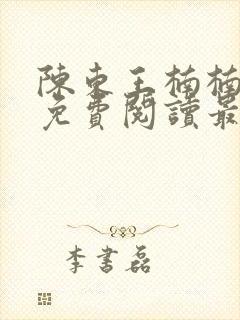 陳東王楠楠
免費閱讀最
李書磊